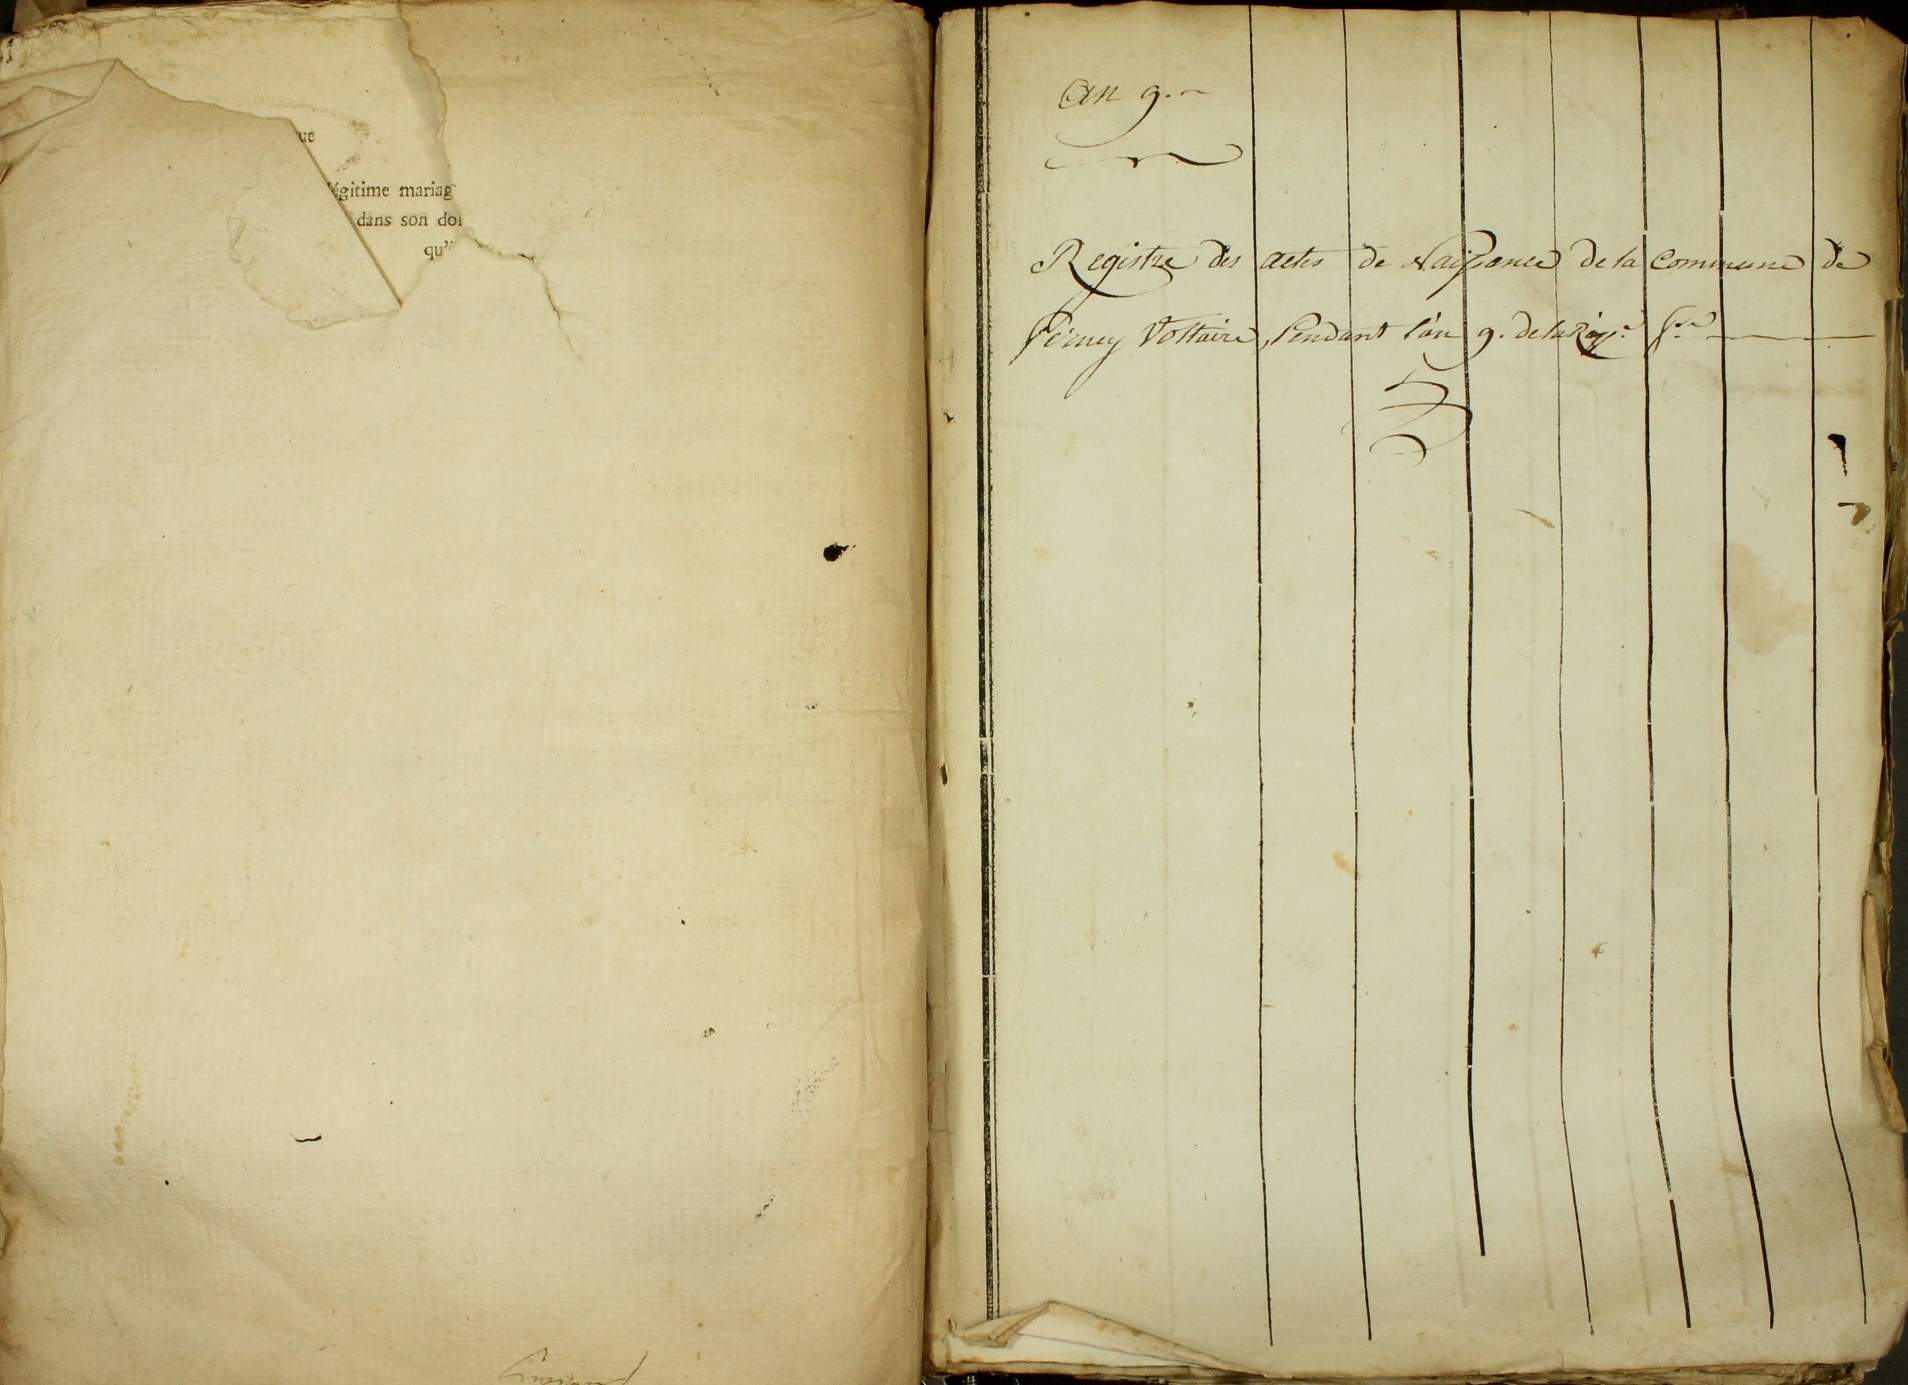 légitime mariag
dans son do
qu'
an 9.
Registre des actes de Naissance de la Commune de
Ferney Voltaire, Pendant l'an 9. de la Rép.e f.se